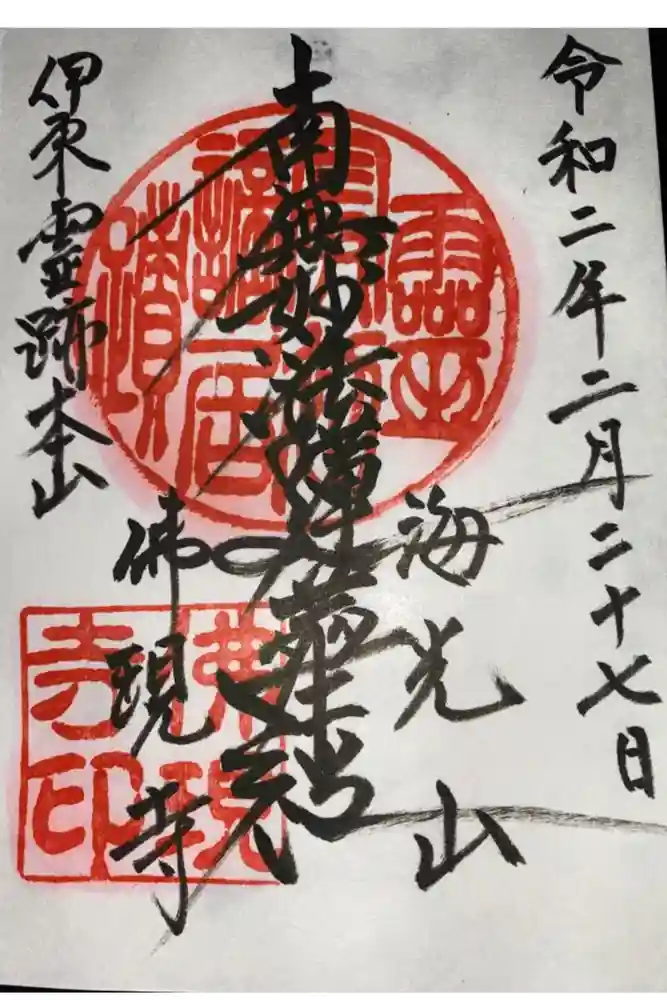 令和二年二月二十七日
海光山
南無妙法蓮華経
佛現寺
伊東霊跡本山
謫居
蹟
佛現
寺印